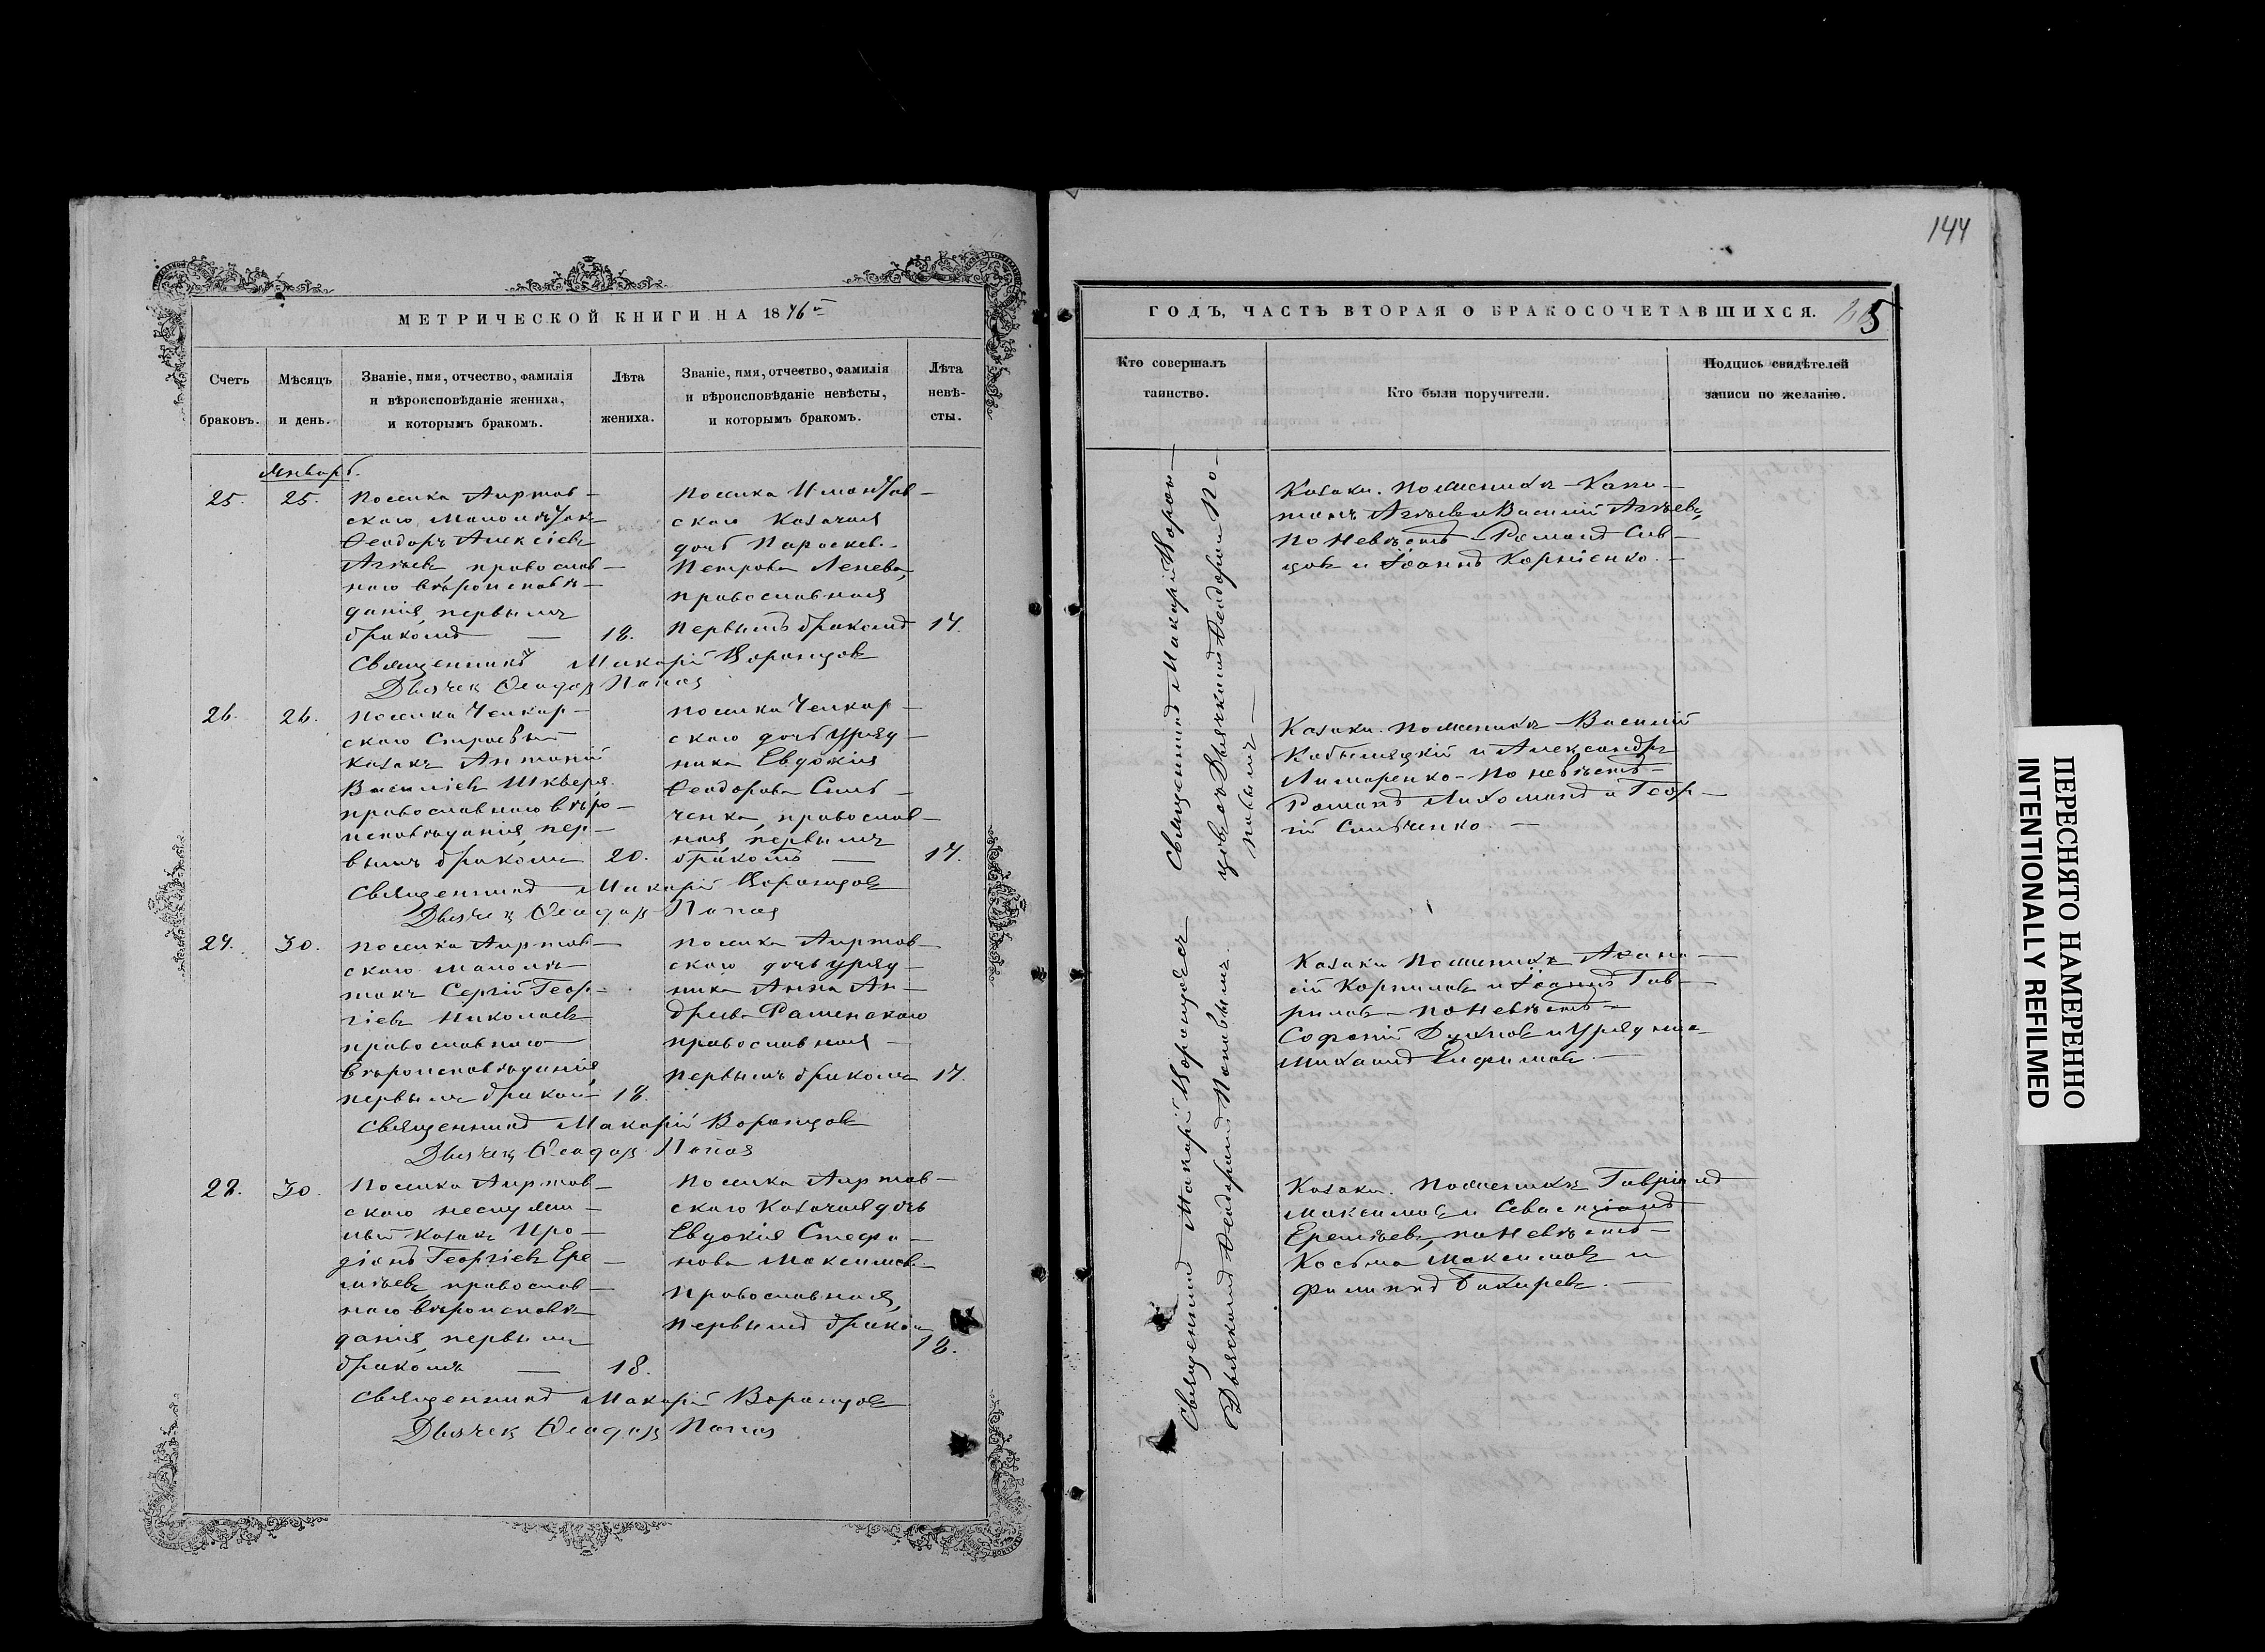 144
МЕТРИЧЕСКОЙ КНИГИ НА 1846й
Счетъ браковъ.
Мѣсяцъ и день.
Званіе, имя, отчество, фамилія
и вѣроисповѣданіе жениха,
и которымъ бракомъ.
Лѣта жениха.
Званіе, имя, отчество, фамилія
и вѣроисповѣданіе невѣсты,
и которымъ бракомъ.
Лѣта невѣ-
сты.
Январь.
25.
25.
Поселка Аиртав-
скаго Малолѣтокъ
Ѳеодоръ Алексіевъ
Агѣевъ православ-
наго вѣроисповѣ-
данія, первымъ
бракомъ —
18.
Поселка Имантав-
скаго Казачья
дочь Параскев.
Петрова Лепева,
православная
первымъ бракомъ
17.
Священникъ Макарій Воронцовъ
Дьячекъ Ѳеодоръ Попов
26.
26.
Поселка Челкар-
скаго Строевый
Казакъ Антоній
Василіевъ Шкверя
православнаго вѣро-
исповѣданія, пер-
вымъ бракомъ
20.
Поселка Челкар-
скаго дочь уряд-
ника Евдокія
Ѳеодорова Силь-
ченка, православ-
ная, первымъ
бракомъ —
17.
Священникъ Макарій Воронцовъ
Дьячекъ Ѳеодоръ Попов
27.
30.
Поселка Аиртав-
скаго Малолѣ-
токъ Сергій Геор-
гіевъ Николаевъ
православнаго
вѣроисповѣданія,
первымъ браком
18.
Поселка Аиртав-
скаго дочь уряд-
ника Анна Ан-
дреева
православная
первымъ бракомъ
17.
Священникъ Макарій Воронцовъ
Дьячекъ Ѳеодоръ Попов
28.
30.
Поселка Аиртав-
скаго неслужа-
щій Казакъ Иро-
діонъ Георгіевъ Ере-
мѣевъ, православ-
наго вѣроисповѣ-
данія, первымъ
бракомъ —
18.
Поселка Аиртав-
скаго Казачья дочь
Евдокія Стефа-
нова Максимов.
Православная,
первымъ бракомъ
18.
Священникъ Макарій Воронцовъ
Дьячекъ Ѳеодоръ Попов
ГОДЪ, ЧАСТЬ ВТОРАЯ О БРАКОСОЧЕТАВШИХСЯ.
5
Кто совершалъ
таинство.
Кто были поручители.
Подпись свидѣтелей
записи по желанію.
Священникъ Макарій Ворон-
цовъ съ Дьячкомъ Ѳеодоромъ По-
повымъ —
Казаки. По женихѣ — Капи-
тонъ Агѣевъ и Василій Агѣевъ,
По Невѣстѣ — Романъ Сив-
цовъ и Іоаннъ Корніенко. —
Казаки. По женихѣ — Василій
Кобыляцкій и Александръ
Лимаренко — По невѣстѣ —
Романъ Лихоманъ и Геор-
гій Сильченко. —
Священникъ Макарій Воронцовъ съ
Дьячкомъ Ѳеодоромъ Поповымъ.
Казаки По женихѣ Аѳана-
сій Корниловъ и Іоаннъ Гав-
риловъ — по Невѣстѣ —
Софоній и Урядник
Михаилъ Ефимовъ. —
Казаки. По женихѣ Гавріилъ
Максимовъ и Севастіанъ
Еремѣевъ, по Невѣстѣ —
Косьма Максимовъ и
Филиппъ Бахиревъ. —
ПЕРЕСНЯТО НАМЕРЕННО
INTENTIONALLY REFILMED